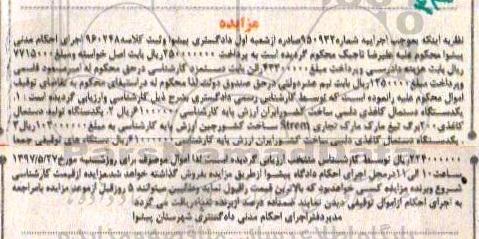 مزایده
نظریه اینکه بموجب اجراییه شماره ۹۵۰۹۳۲ صادره از شعبه اول دادگستری پیشوا وثبت کلاسه ۹۶۰۲۴۸ اجرای احکام مدنی
پیشوا محکوم علیه علیرضا تاجیک محکوم گردیده است به پرداخت ۲۵۰۰۰۰۰۰۰ ریال بابت اصل خواسته ومبلغ ۷۷۱۵۰۰۰
ریال بابت هزینه دادرسی وپرداخت مبلغ بابت دستمزد کارشناسی درحق محکوم له سیدمسعود
ومبلغ ۱۲۵۰۰۰۰۰ ریال بابت نیم عشردولتی درحق صندوق دولت لذا محکوم له دراستیفای محکوم به تقاضای توقیف
اموال محکوم علیه رانموده است که توسط کارشناس رسمی دادگستری بشرح ذیل کارشناسی وارزیابی گردیده است ۱.
یکدستگاه دستمال کاغذی دلسی ساخت کشورایران ارزش پایه کارشناسی ریال ۲. یکدستگاه تولید دستمال
کاغذی ۲۰۰ برگ تیغ مارک مارک تجاری Strem ساخت کشورچین ارزش پایه کارشناسی به مبلغ ریال
یکدستگاه دستمال کاغذی دلسی ساخت کشورایران ارزش پایه کارشناسی ریال دستگاه های توقیفی جمعا
۲۲۴۰۰۰۰۰۰ ریال توسط کارشناس مشخص ارزیابی گردیده است. لذا اموال موصوف برای روزشنبه مورخ ۱۳۹۷/۵/۲۷
ساعت ۱۰ الی ۱۱ درمحل اجرای احکام دادگاه پیشوا ازطریق مزایده بفروش گذاشته خواهد شد. مزایده ازقیمت کارشناسی
شروع وبرنده مزایده کسی خواهدبود که بالاترین قیمت راقبول نماید ومتقاضیین میتوانند ۵ روزقبل ازموعد مزایده بامراجعه
به اجرای احکام ازاموال توقیفی دیدن نمایند ضمنا ده درصد ازبرنده نقدا دریافت می گردد.
مدیردفتراجرای احکام مدنی دادگستری شهرستان پیشوا